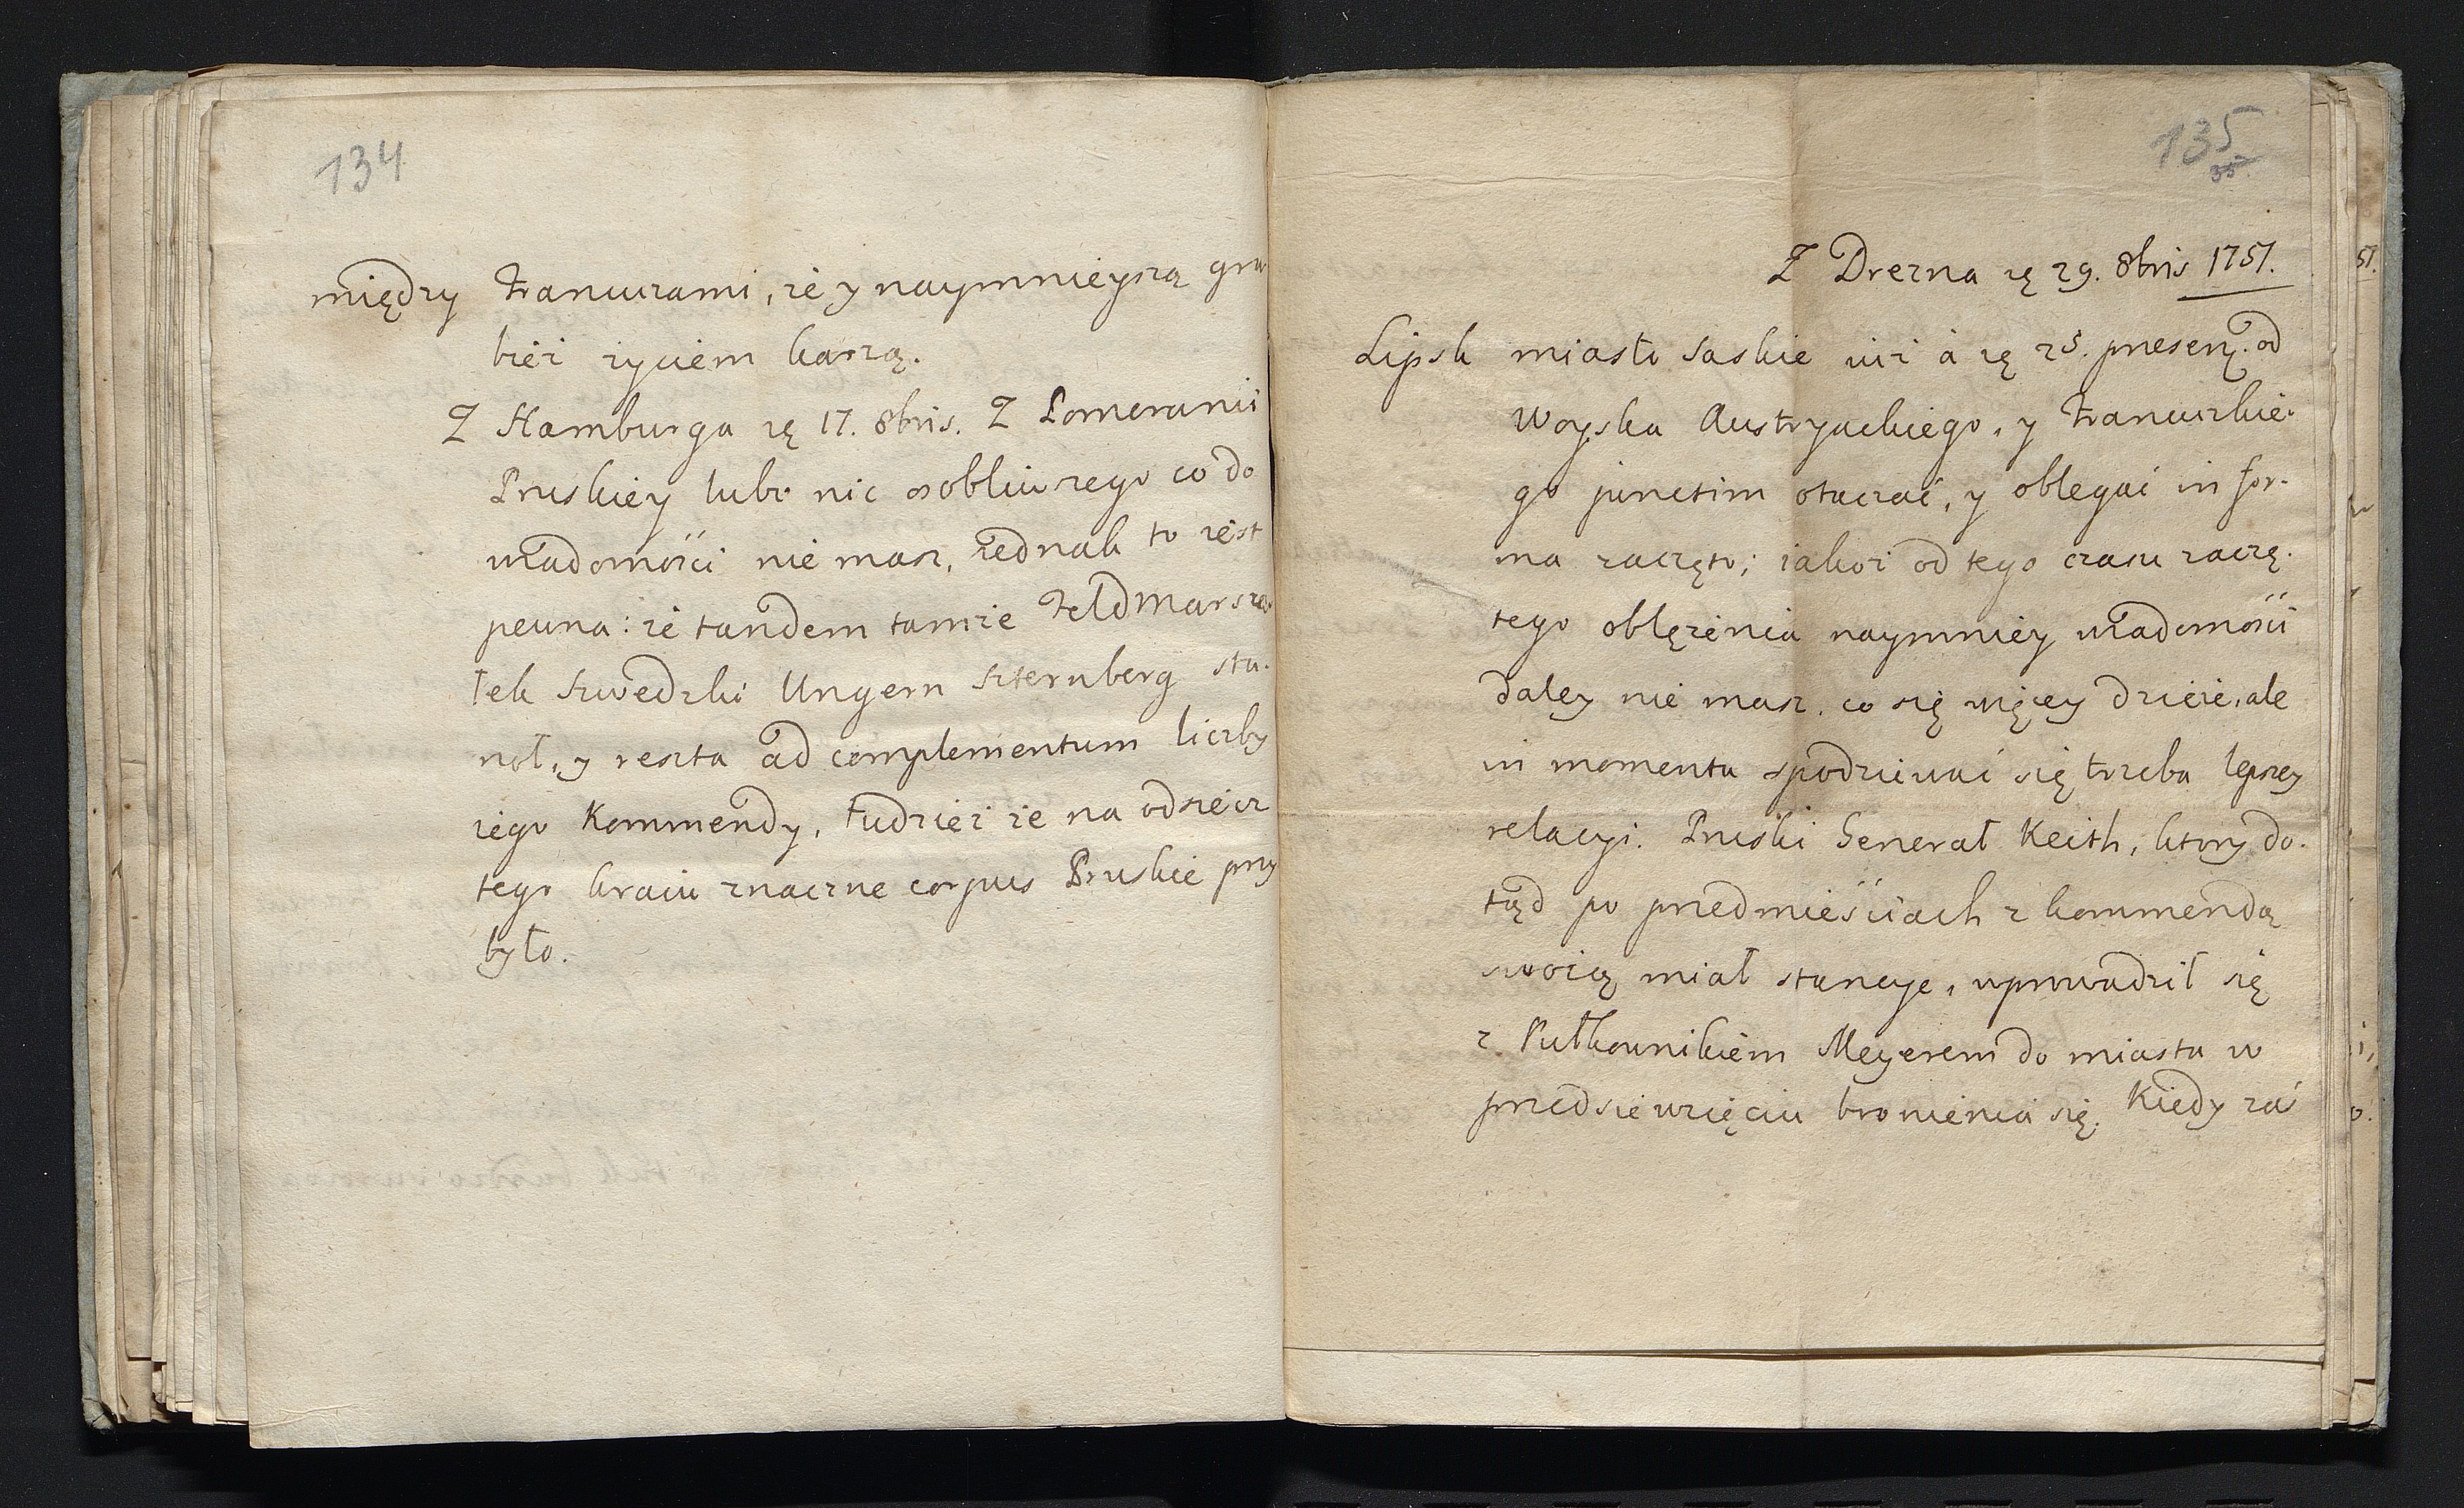 134
między Francuzami, że y naymnieyszą gra-
bież życiem karzą.
Z Hamburga zę 17. 8bris. Z Pomeranii
Pruskiey lubo nic osobliwszego co do
wiadomości nie masz, iednak to iest
pewna: że tandem tamże Feldmarsza-
łek Szwedzki Ungern Szternberg sta-
nął, y reszta ad complementum liczby
iego Kommendy, tudzież że na odsiecz
tego kraiu znaczne corpus Pruskie przy
było.
135
35.
Z Drezna zę 29. 8bris 1757.
Lipsk miasto Saskie iuż à zę 25. presenţ. od
Woyska Austryackiego, y Francuzkie-
go junctim otaczać, y oblegać in for-
ma zaczęto; iakoż od tego czasu zaczę-
tego oblężenia naymniey wiadomości
daley nie masz, co się więcey dzieie, ale
in momenta spodziewać się trzeba lepszey
relacyi. Pruski Generał Keith, ktory do-
tąd po przedmieściach z kommendą
swoią miał stancye, wprowadził się
z Pułkownikiem Meyerem do miasta w
przedsiewzięciu bronienia się. Kiedy zaś